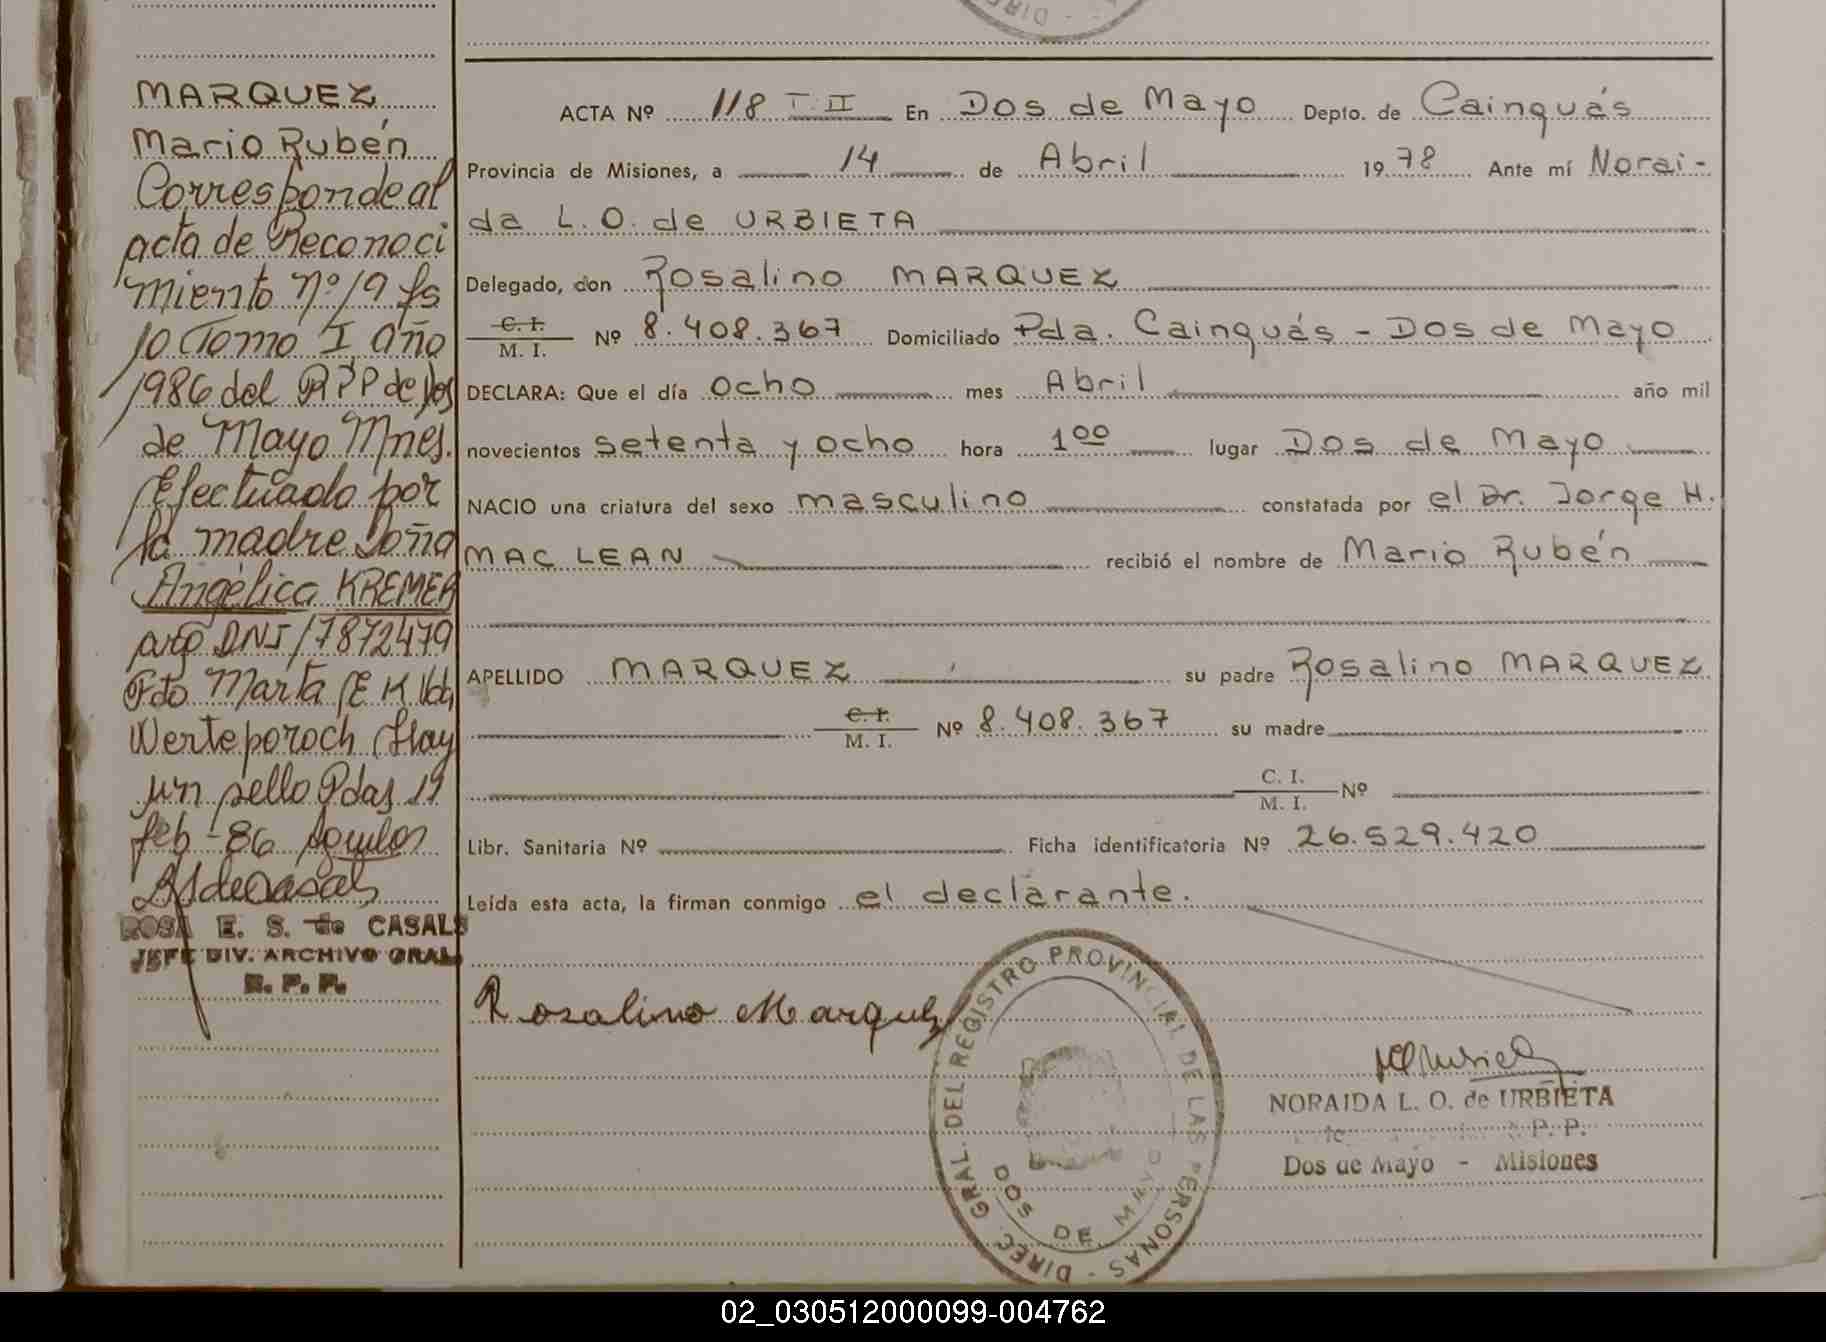 MARQUEZ,
Mario Rubén
Corresponde al
acta de Reconoci
miento Nº 19 fs
10 Tomo I, año
1986 del RPP de Dos
de Mayo Mnes.
Efectuado por
la madre Doña
Angélica KREMER
arg DNI 17872479
Fdo Marta E K Vda
Werteporoch Hay
un sello Pdas 19
feb-86
ROSA E. S. de CASALS
JEFE DIV. ARCHIVO GRAL.
R. P. P.
ACTA Nº 118 T. II En Dos de Mayo Depto. de Cainguás
Provincia de Misiones, a 14 de Abril 1978 Ante mí Norai-
da L. O. de URBIETA
Delegado, don Rosalino MARQUEZ
C. I. / M. I. Nº 8.408.367 Domiciliado Pda. Cainguás - Dos de Mayo
DECLARA: Que el día ocho mes Abril año mil
novecientos setenta y ocho hora 1 00 lugar Dos de Mayo
NACIO una criatura del sexo masculino constatada por el Dr. Jorge H.
MAC LEAN recibió el nombre de Mario Rubén
APELLIDO MARQUEZ su padre Rosalino MARQUEZ
C. I. / M. I. Nº 8.408.367 su madre
C. I. / M. I. Nº
Libr. Sanitaria Nº Ficha identificatoria Nº 26.529.420
Leída esta acta, la firman conmigo el declarante.
Rosalino Marquez
DIREC. GRAL. DEL REGISTRO PROVINCIAL DE LAS PERSONAS -
DOS DE MAYO
NORAIDA L. O. de URBIETA
P. P.
Dos de Mayo - Misiones
02_030512000099-004762